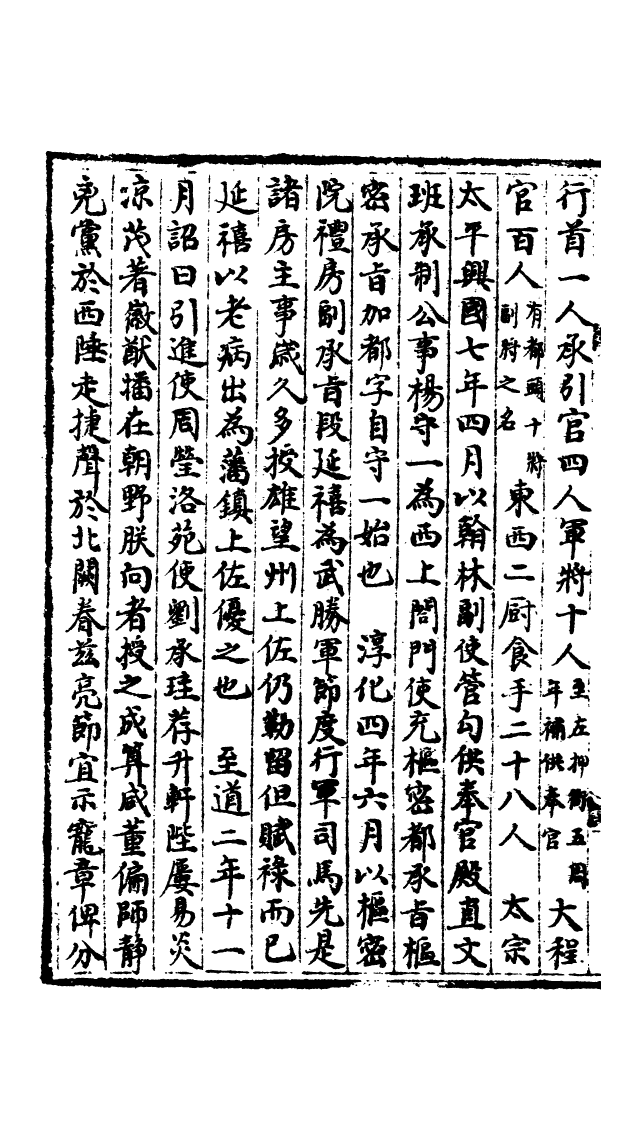 行首一人承引官四人軍將十人至左押衙五周年補供奉官大程
官百人有都頭十將副將之名東西二厨食手二十八人　太宗
太平興國七年四月以翰林副使管勾供奉官殿直文
班承制公事楊守一為西上閤門使充樞密都承旨樞
密承旨加都字自守一始也　淳化四年六月以樞密
院禮房副承旨段延禧為武勝軍節度行軍司馬先是
諸房主事歲久多授雄望州上佐仍勒留但賦祿而已
延禧以老病出為藩鎮上佐優之也　至道二年十一
月詔曰引進使周瑩洛苑使劉承珪荐升軒陛屢易炎
凉茂著徽猷播在朝野朕向者授之成筭咸董偏師静
兇黨於西陲走捷聲於北闕眷兹亮節宜示寵章俾分